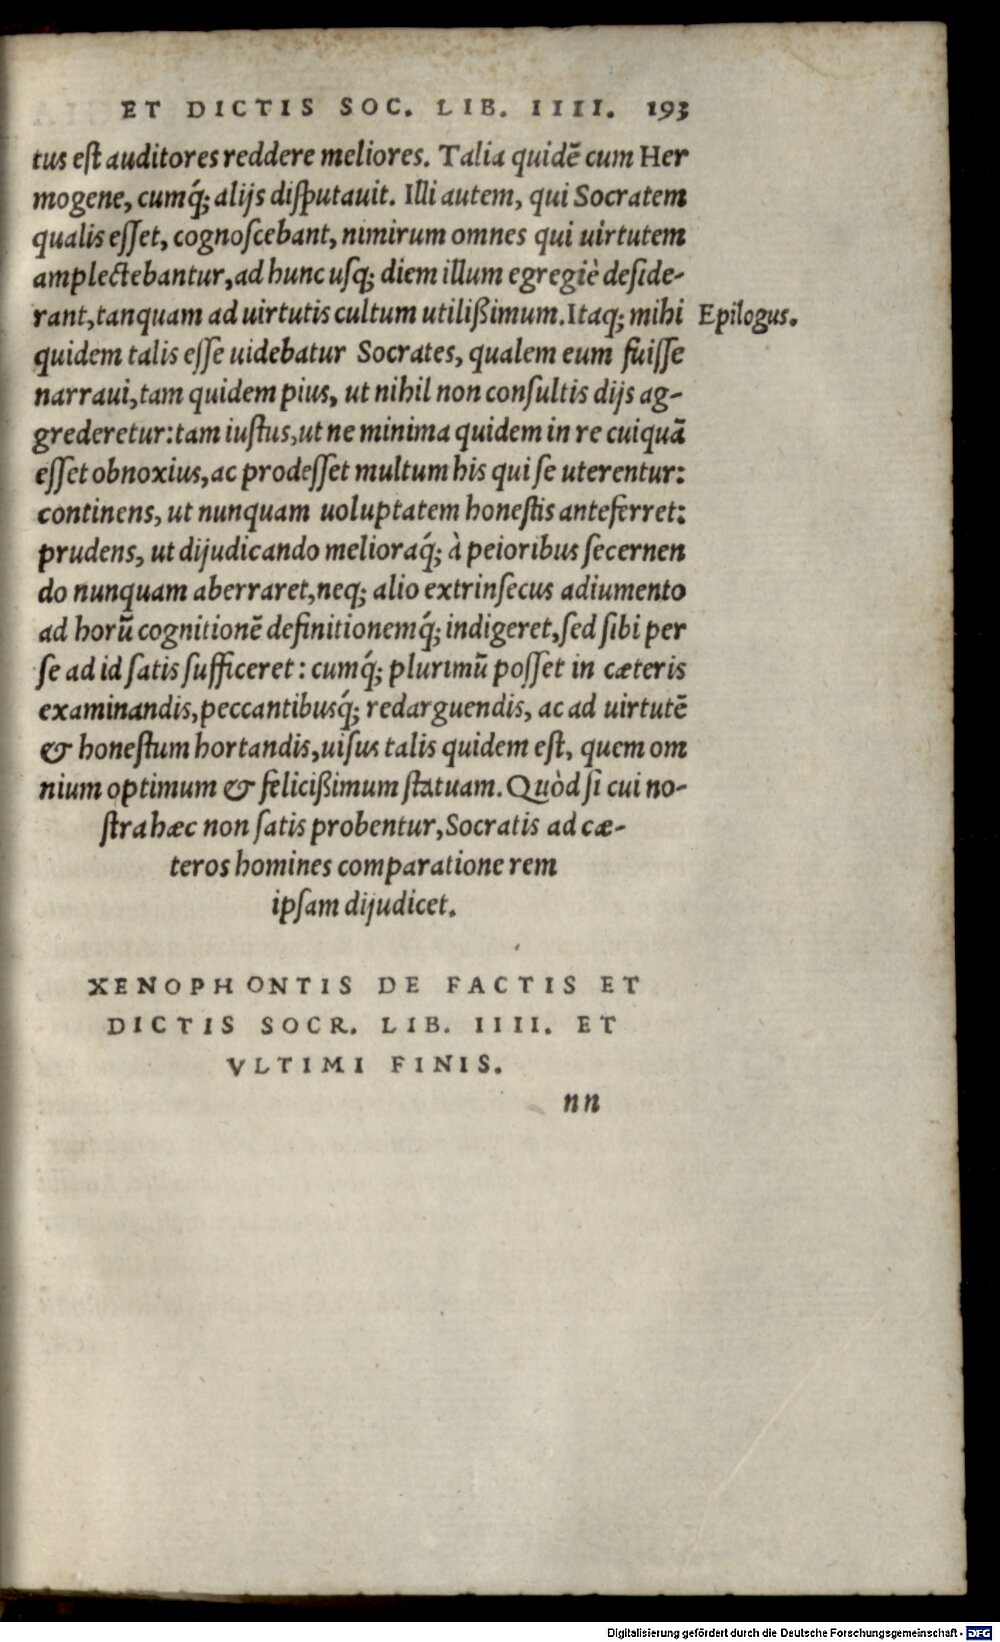 ET DICTIS SOC. LIB. IIII. 193
tus eſt auditores reddere meliores. Talia quidē cum Her
mogene, cumq́; alijs diſputauit. Illi autem, qui Socratem
qualis eſſet, cognoſcebant, nimirum omnes qui uirtutem
amplectebantur, ad hunc uſq; diem illum egregiè deſide-
rant, tanquam ad uirtutis cultum utilißimum. Itaq; mihi
Epilogus.
quidem talis eſſe uidebatur Socrates, qualem eum fuiſſe
narraui, tam quidem pius, ut nihil non conſultis dijs ag-
grederetur: tam iuſtus, ut ne minima quidem in re cuiquā
eſſet obnoxius, ac prodeſſet multum his qui ſe uterentur:
continens, ut nunquam uoluptatem honeſtis anteferret:
prudens, ut dijudicando melioraq́; à peioribus ſecernen
do nunquam aberraret, neq; alio extrinſecus adiumento
ad horū cognitionē definitionemq́; indigeret, ſed ſibi per
ſe ad id ſatis ſufficeret: cumq́; plurimū poſſet in cæteris
examinandis, peccantibusq́; redarguendis, ac ad uirtutē
& honeſtum hortandis, uiſus talis quidem eſt, quem om
nium optimum & felicißimum ſtatuam. Quòd ſi cui no-
ſtra hæc non ſatis probentur, Socratis ad cæ-
teros homines comparatione rem
ipſam dijudicet.
XENOPHONTIS DE FACTIS ET
DICTIS SOCR. LIB. IIII. ET
VLTIMI FINIS.
nn
Digitalisierung gefördert durch die Deutsche Forschungsgemeinschaft - DFG